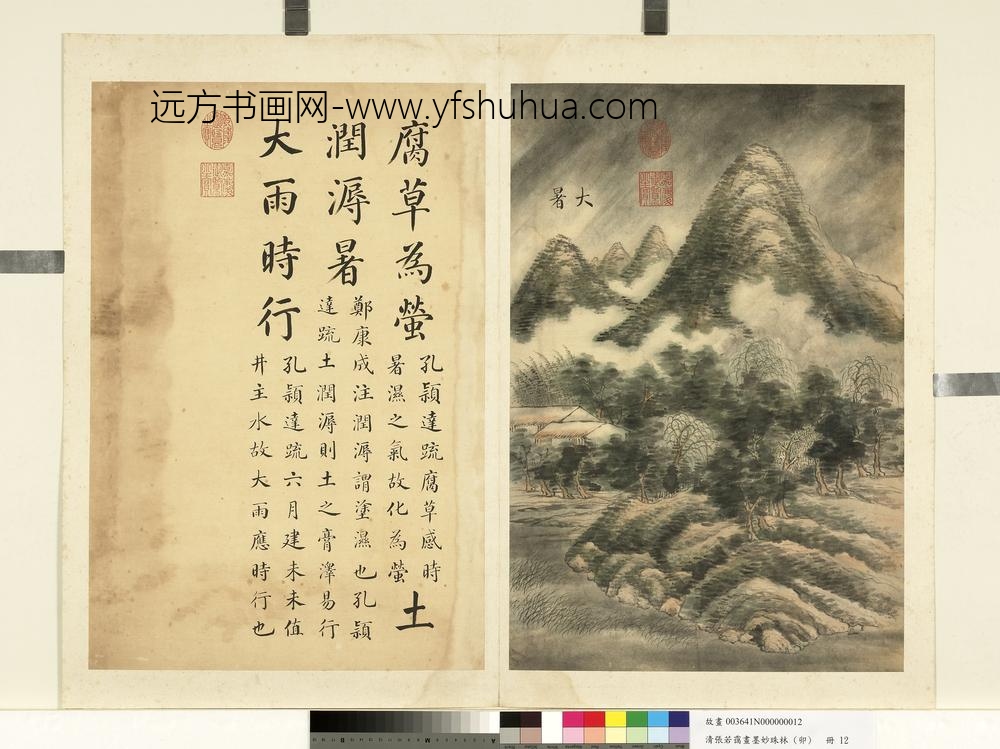 远方书画网-www.yfshuhua.com
大暑
腐草為螢
孔穎達疏腐草感時
暑濕之氣故化為螢
土
潤溽暑
鄭康成注潤溽謂塗濕也孔穎
達疏土潤溽則土之膏澤易行
大雨時行
孔穎達疏六月建未未值
井主水故大雨應時行也
故畫 003641N000000012
清張若靄畫墨妙珠林（卯） 冊 12